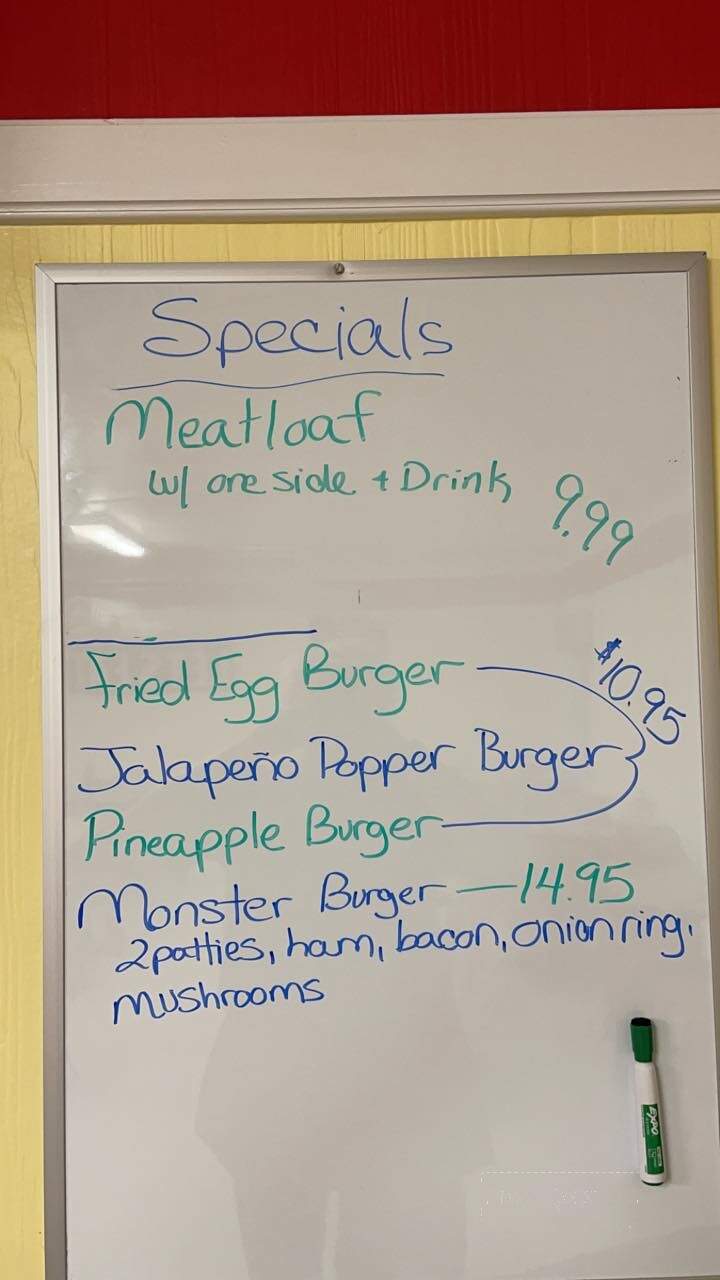 Specials
Meatloaf
w/ one side + Drink 9.99
Fried Egg Burger
$10.95
Jalapeño Popper Burger
Pineapple Burger
Monster Burger — 14.95
2 patties, ham, bacon, onion ring,
mushrooms
EXPO